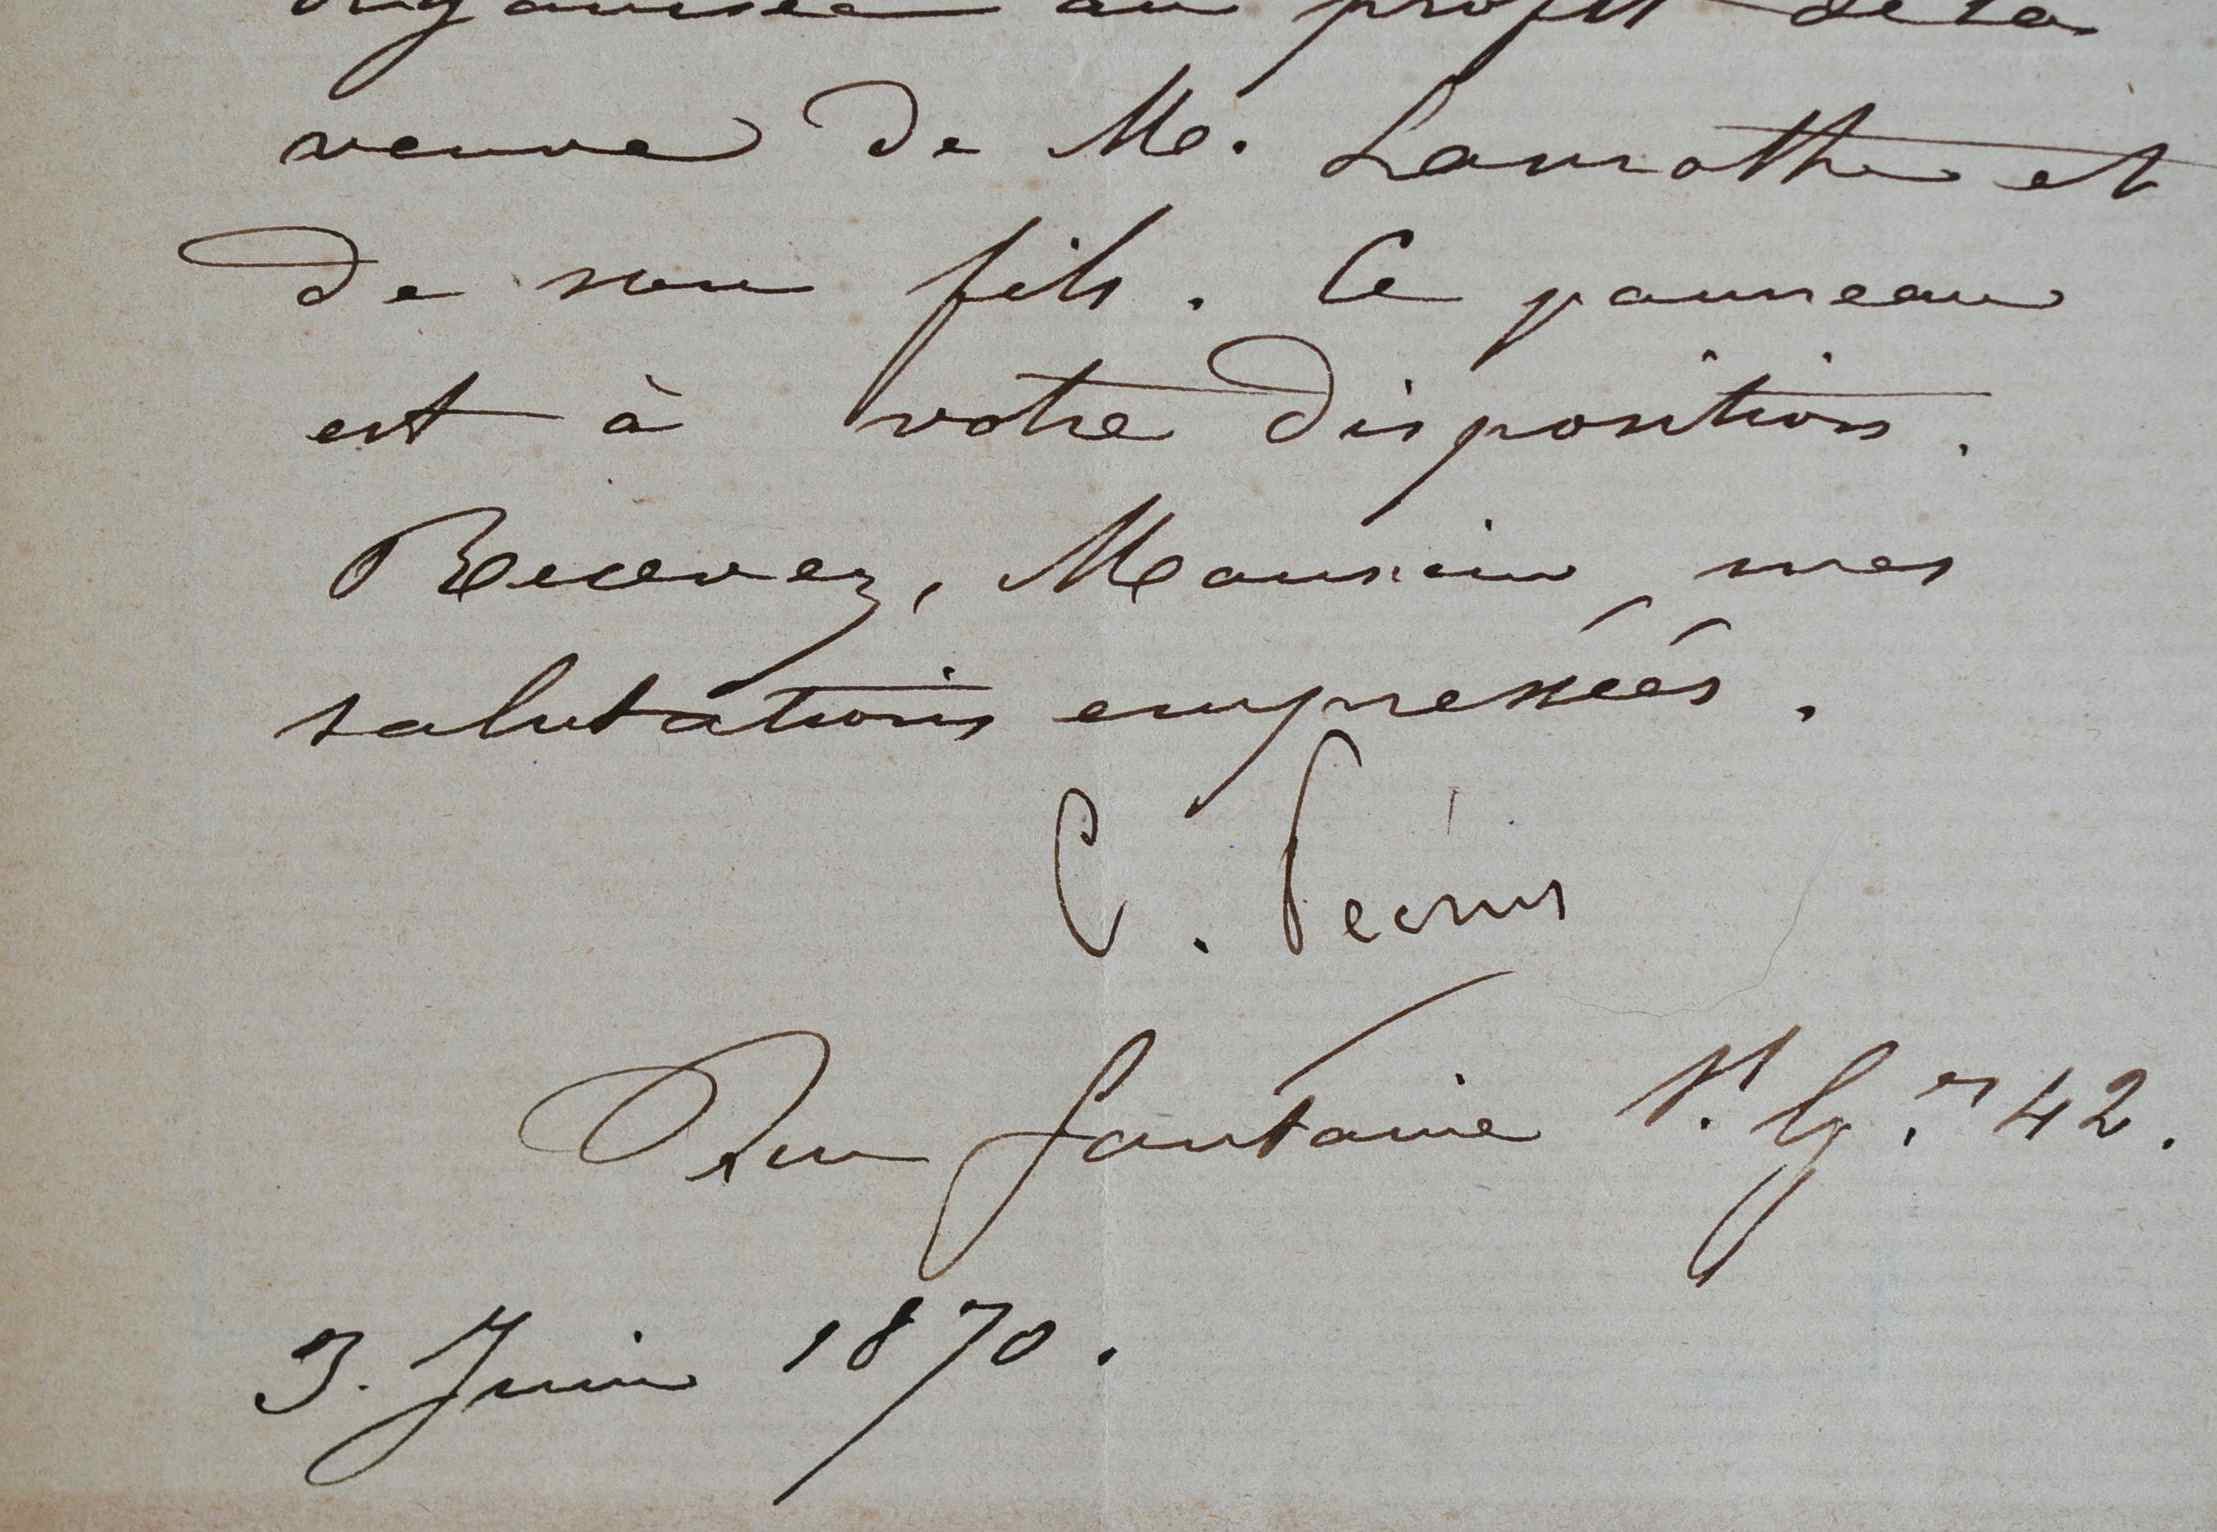 organisée au profit de la
veuve de M. Lamothe et
de son fils. Ce panneau
est à votre disposition.
Recevez, Monsieur mes
salutations empressées.
C.
Rue fontaine St. G. es 42.
3. Juin 1870.